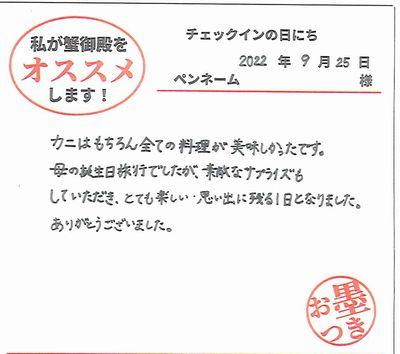 私が蟹御殿を
オススメ
します！
チェックインの日にち
2022 年 9 月 25 日
ペンネーム 様
カニはもちろん全ての料理が美味しかったです。
母の誕生日旅行でしたが、素敵なサプライズも
していただき、とても楽しい思い出に残る1日となりました。
ありがとうございました。
お墨つき